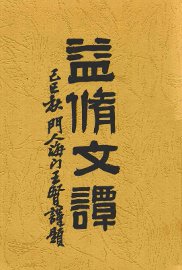 益脩文譚
己巳秋門人海門王賢謹題